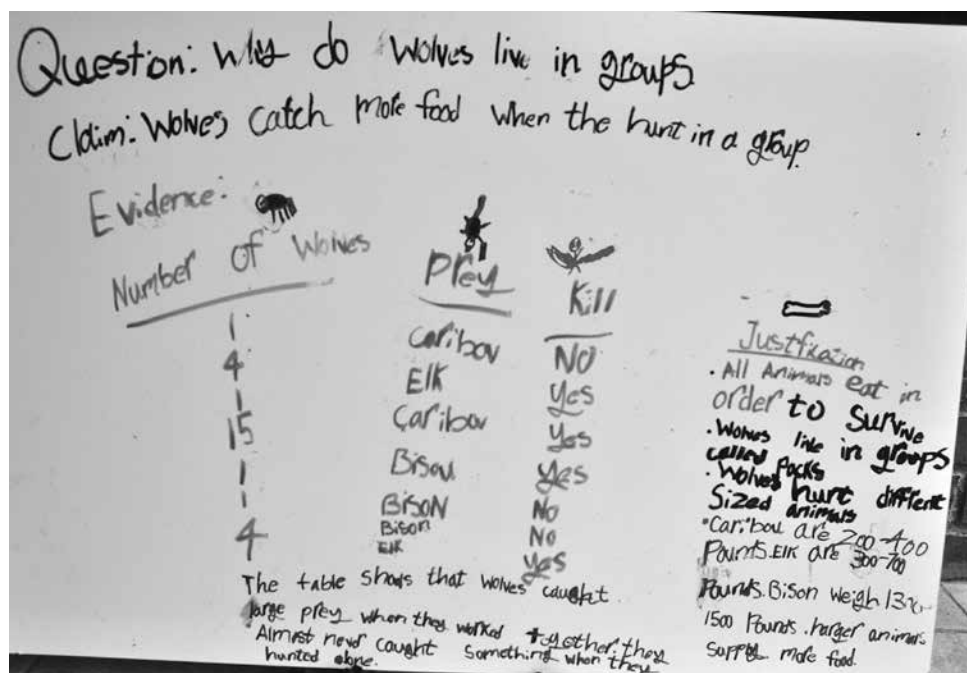 Question: Why do Wolves live in groups
Claim: Wolves catch more food when the hunt in a group.
Evidence:
Number of Wolves Prey Kill
1 Caribou NO
4 Elk Yes
1 Caribou Yes
15 Bison Yes
1 BisoN No
1 Bison No
4 Elk Yes
The table shows that wolves caught
large prey when they worked together. they
Almost never caught something when they
hunted alone.
Justfication
• All Animals eat in
order to Survive
• Wolves live in groups
called Packs
• Wolves hunt diffrent
Sized animals
• Caribou are 200-400
Pounds. Elk are 300-700
Pounds. Bison weigh
1500 Pounds. larger animals
supply more food.